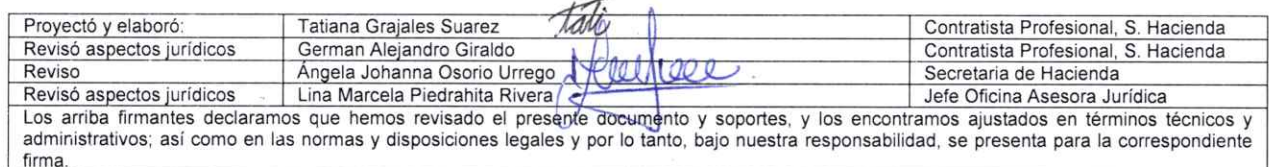 Proyectó y elaboró: Tatiana Grajales Suarez Tati Contratista Profesional, S. Hacienda
Revisó aspectos jurídicos German Alejandro Giraldo Contratista Profesional, S. Hacienda
Reviso Ángela Johanna Osorio Urrego Secretaria de Hacienda
Revisó aspectos jurídicos Lina Marcela Piedrahita Rivera Jefe Oficina Asesora Jurídica
Los arriba firmantes declaramos que hemos revisado el presente documento y soportes, y los encontramos ajustados en términos técnicos y
administrativos; así como en las normas y disposiciones legales y por lo tanto, bajo nuestra responsabilidad, se presenta para la correspondiente
firma.